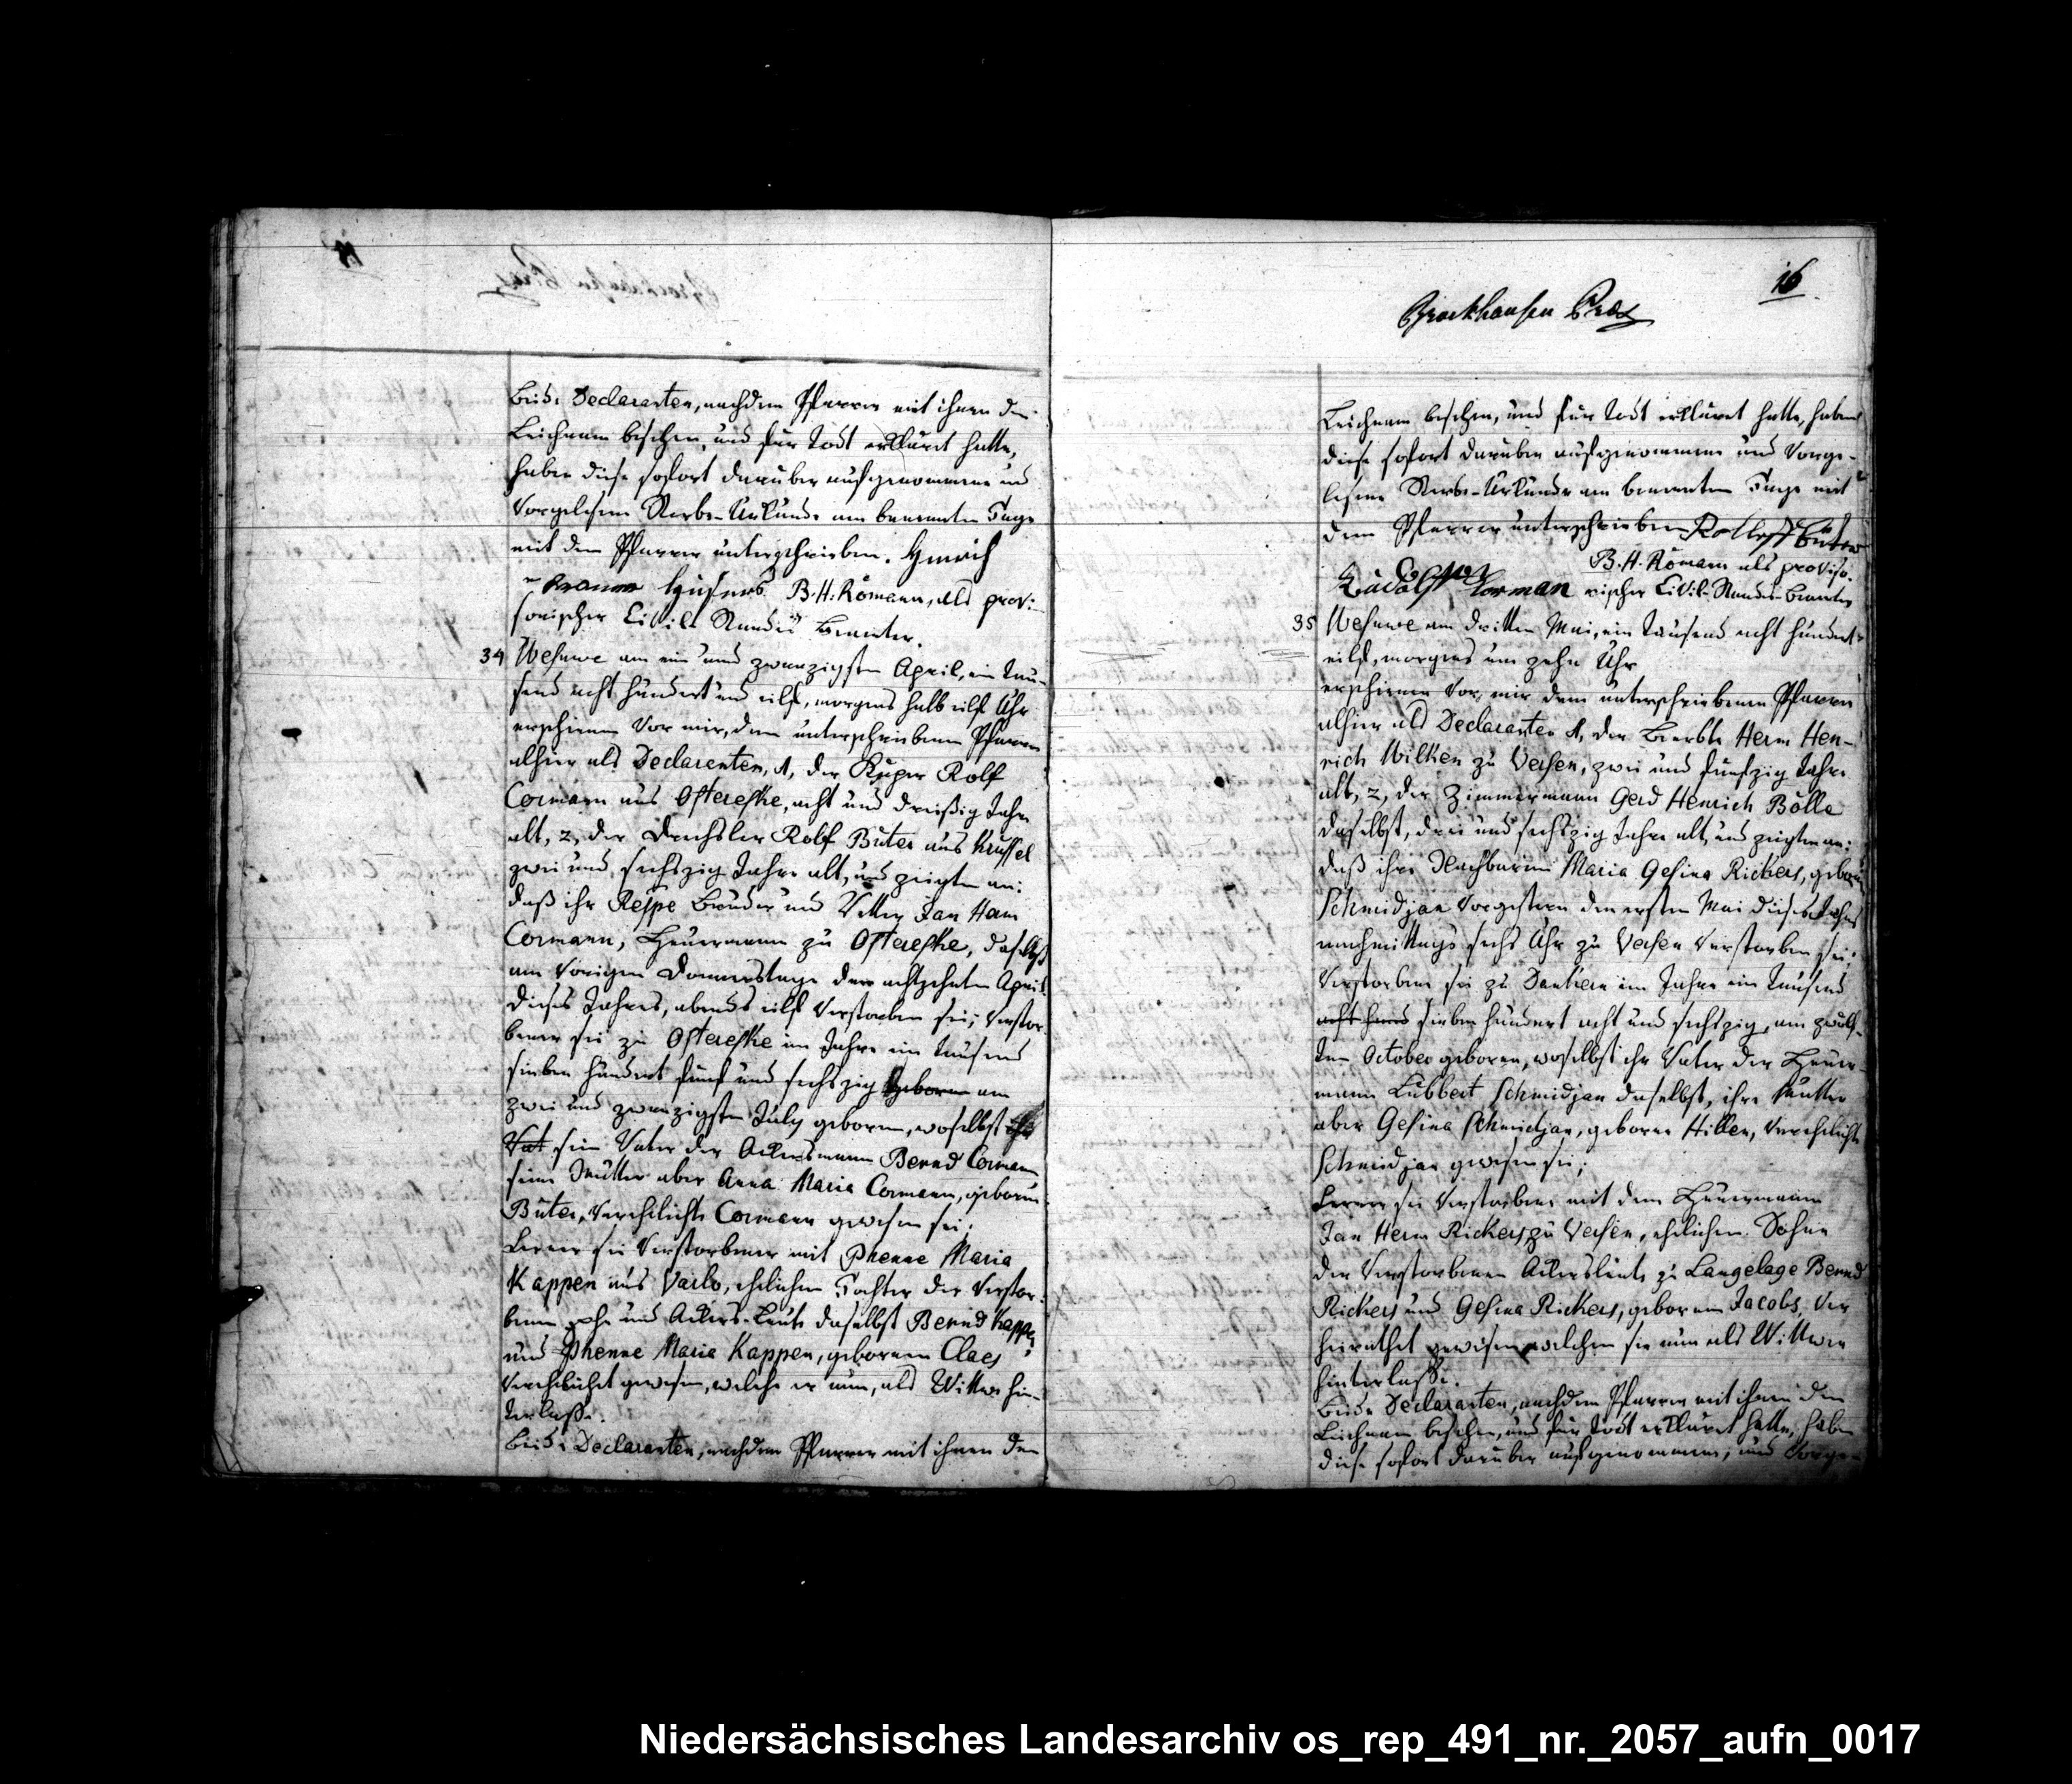 Beide Declaranten, nachdem Pfarrer mit ihnen den
Leichnam besehen, und für todt erkläret hatte,
haben diese sofort darüber aufgenommene und
vorgelesene Sterbe-Urkunde am benannten Tage
mit dem Pfarrer unterschrieben. Hinrich
B. H. Römann, als provi-
sorischer Civil-Standes Beamter.
34 Wesuwe am ein und zwanzigsten April, ein tau-
send acht hundert und eilf, morgens halb eilf Uhr
erschienen vor mir, dem unterschriebenen Pfarrer
alhier als Declarenten, 1, der Küper Rolf
Cormann aus Ostereske, acht und dreißig Jahre
alt, 2, der Drechsler Rolf Büter aus Krussel
zwei und sechszig Jahre alt, und zeigten an:
daß ihr Respe Bruder und Vetter Jan Herm
Cormann, Heuermann zu Ostereske, daselbst
am vorigen Donnerstage den achtzehnten April
dieses Jahres, abends eilf verstorben sei; Verstor-
bener sei zu Ostereske im Jahre ein tausend
sieben hundert fünf und sechszig geboren am
zwei und zwanzigsten July geboren, woselbst
Vat sein Vater der Ackersmann Bernd Cormann
seine Mutter aber Anna Maria Cormann, geborene
Büter, verehelichte Cormann gewesen sei;
Ferner sei Verstorbener mit Phenne Maria
Kappen aus Varlo, ehelichen Tochter der verstor-
benen Ehe und Ackers-Leute daselbst Bernd Kappen
und Phenne Maria Kappen, geborenen Claes
verehelichet gewesen, welche er nun, als Wittwe hin-
terlasse.
Beide Declaranten, nachdem Pfarrer mit ihnen den
16
Brockhausen Präs
Leichnam besehen, und für todt erkläret hatte, haben
diese sofort darüber aufgenommene und vorge-
lesene Sterbe-Urkunde am benannten Tage mit
dem Pfarrer unterschrieben Rolf Büter
B. H. Römann als proviso-
Rudolf Corman rischer Civil-Standes-Beamter
35 Wesuwe am dritten Mai, ein tausend acht hundert
eilf, morgens um zehn Uhr
erschienen vor mir dem unterschriebenen Pfarrer
alhier als Declaranten 1, der Beerbte Herm Hen-
rich Wilken zu Versen, zwei und fünfzig Jahre
alt, 2, der Zimmermann Gerd Henrich Bölle
daselbst, drei und sechszig Jahre alt, und zeigten an:
daß ihre Nachbarinn Maria Gesina Rickers, geborene
Schmidjan vorgestern den ersten Mai dieses Jahres
nachmittags sechs Uhr zu Versen verstorben sei;
Verstorbene sei zu Dankern im Jahre ein tausend
acht hund sieben hundert acht und sechszig, am zwölf-
ten October geboren, woselbst ihr Vater der Heuer-
mann Lübbert Schmidjan daselbst, ihre Mutter
aber Gesina Schmidjan, geborne Hillen, verehelichte
Schmidjan gewesen sei;
Ferner sei Verstorbene mit dem Heuermann
Jan Herm Rickers zu Versen, ehelichen Sohne
der verstorbenen Ackersleute zu Langelage Bernd
Rickers und Gesina Rickers, geborenen Jacobs, ver
heirathet gewesen, welchen sie nun als Wittwer
hinterlasse.
Beide Declaranten, nachdem Pfarrer mit ihnen den
Leichnam besehen, und für todt erkläret hatte, haben
diese sofort darüber aufgenommene, und vorge-
Niedersächsisches Landesarchiv os_rep_491_nr._2057_aufn_0017